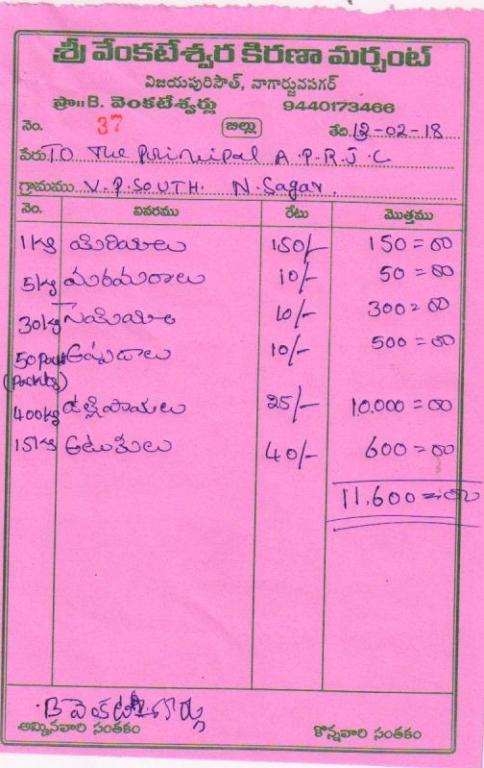 శ్రీ వేంకటేశ్వర కిరణా మర్చంట్
విజయపురిసౌత్, నాగార్జునసాగర్
ప్రొ॥ B. వెంకటేశ్వర్లు 9440173466
నెం. 37 బిల్లు తేది 12-02-18
పేరు TO The Principal A.P.R.J.C
గ్రామము V.P.SOUTH. N.Sagar.
నెం. వివరము రేటు మొత్తము
1 Kg మిరియాలు 150/- 150=00
5 Kg మరమరాలు 10/- 50=00
30 Kg 10/- 300=00
50 అప్పడాలు 10/- 500=00
(Packets)
400 Kg ఉల్లిపాయలు 25/- 10.000=00
15 Kg అటుకులు 40/- 600=00
11.600=00
B వెంకటేశ్వర్లు
అమ్మినవారి సంతకం కొన్నవారి సంతకం